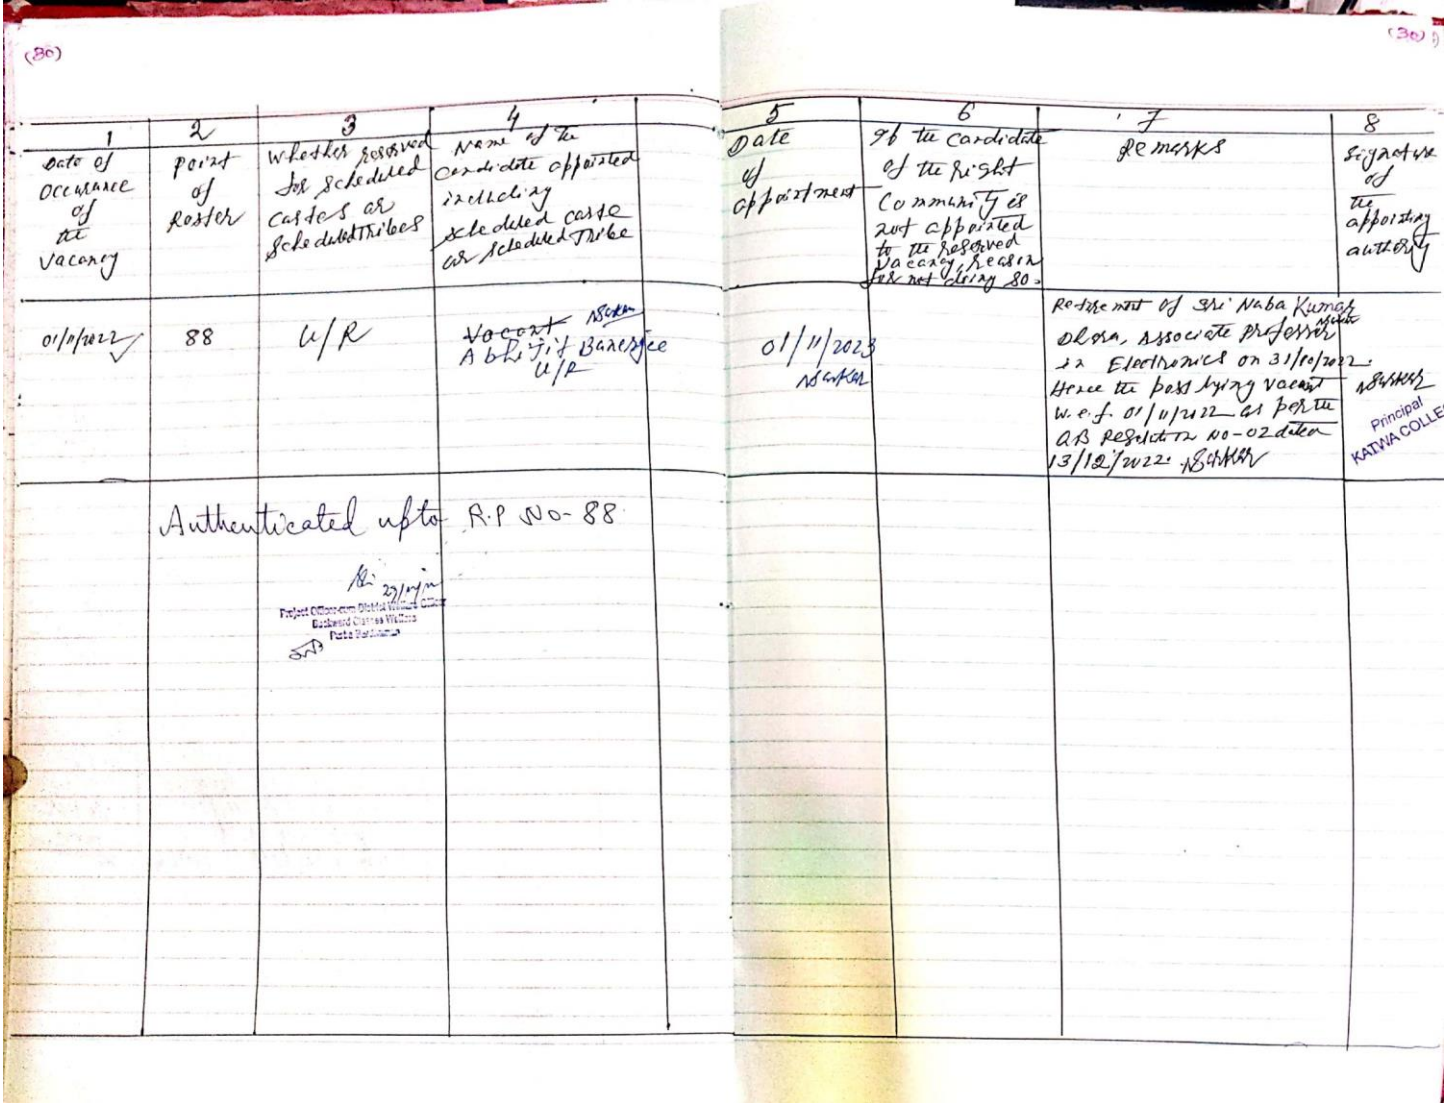 (30)
(30)
1
Date of
Occurance
of
the
vacancy
2
point
of
Roster
3
Whether reserved
for scheduled
castes or
scheduledTribes
4
Name of the
candidate appointed
including
scheduled caste
or scheduled Tribe
5
Date
of
appointment
6
If the candidate
of the right
Community is
not appointed
to the reserved
vacancy, reason
for not doing so.
7
Remarks
8
signature
of
the
appointing
authority
01/11/2022
88
U/R
Vacant NSarkar
Abhijit Banerjee
U/R
01/11/2023
NSarkar
Retirement of Sri Naba Kumar
Dhara, Associate professor NSarkar
in Electronics on 31/10/2022.
Hence the post lying vacant
w.e.f. 01/11/2022 as per the
GB Resolution No-02 dated
13/12/2022. NSarkar
NSarkar
Principal
KATWA COLLE
Authenticated upto R.P NO-88
Project Officer-cum District Welfare Officer
Backward Classes Welfare
Purba Bardhaman